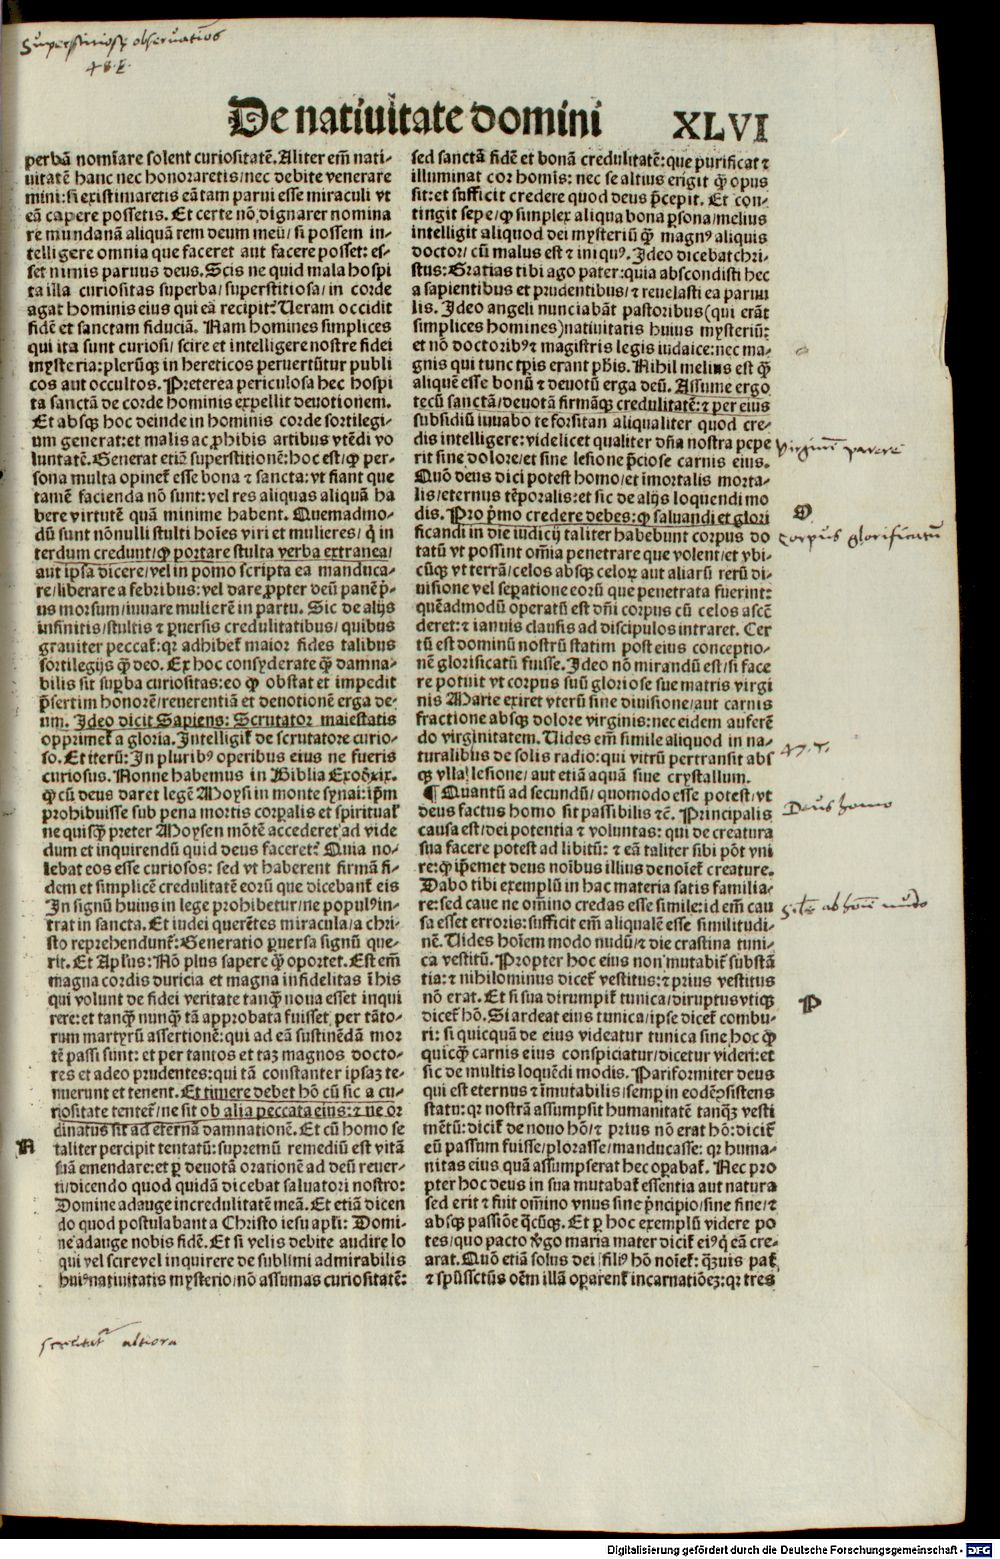 Superstitiosę obseruatiōs
48.E.
De natiuitate domini XLVI
perbā nomīare solent curiositatē. Aliter em̄ nati⸗
uitatē hanc nec honoraretis/nec debite venerare
mini: si existimaretis eā tam parui esse miraculi vt
eā capere possetis. Et certe nō dignarer nomina
re mundanā aliquā rem deum meū/ si possem in⸗
telligere omnia que faceret aut facere posset: es⸗
set nimis paruus deus. Scis ne quid mala hospi
ta illa curiositas superba/superstitiosa/ in corde
agat hominis eius qui eā recipit? Ueram occidit
fidē et sanctam fiduciā. Nam homines simplices
qui ita sunt curiosi/ scire et intelligere nostre fidei
mysteria: plerūqꝫ in hereticos peruertūtur publi
cos aut occultos. Preterea periculosa hec hospi
ta sanctā de corde hominis expellit deuotionem.
Et absqꝫ hoc deinde in hominis corde sortilegi⸗
um generat: et malis ac ꝓhibis artibus vtēdi vo
luntatē. Generat etiā superstitionē: hoc est/ꝙ per⸗
sona multa opinet̄ esse bona ⁊ sancta: vt fiant que
tamē facienda nō sunt: vel res aliquas aliquā ha
bere virtutē quā minime habent. Quemadmo⸗
dū sunt nōnulli stulti hoīes viri et mulieres/ q̇ in
terdum credunt/ꝙ portare stulta verba extranea/
aut ipsa dicere/vel in pomo scripta ea manduca⸗
re/liberare a febribus: vel dare ꝓpter deū panē p̄⸗
us morsum/iuuare mulierē in partu. Sic de alijs
infinitis/stultis ⁊ ꝑuersis credulitatibus/ quibus
grauiter peccat̄: qꝛ adhibet̄ maior fides talibus
sortilegijs q̄ꝫ deo. Ex hoc consyderate q̄ꝫ damna⸗
bilis sit suꝑba curiositas: eo ꝙ obstat et impedit
p̄sertim honorē/reuerentiā et deuotionē erga de⸗
um. Ideo dicit Sapiens: Scrutator maiestatis
opprimet̄ a gloria. Intelligit̄ de scrutatore curio⸗
so. Et iterū: In pluribꝰ operibus eius ne fueris
curiosus. Nonne habemus in Biblia Exo. xix.
ꝙ cū deus daret legē Moysi in monte synai: ip̄m
prohibuisse sub pena mortis corꝑalis et spiritual̄
ne quisq̄ꝫ preter Moysen mōtē accederet ad vide
dum et inquirendū quid deus faceret? Quia no⸗
lebat eos esse curiosos: sed vt haberent firmā fi⸗
dem et simplicē credulitatē eorū que dicebant̄ eis
In signū huius in lege prohibetur/ne populꝰ in⸗
trat in sancta. Et iudei querētes miracula/a chri⸗
sto reprehendunt̄: Generatio ꝑuersa signū que⸗
rit. Et Apl̄us: Nō plus sapere q̄ꝫ oportet. Est em̄
magna cordis duricia et magna infidelitas ī his
qui volunt de fidei veritate tanq̄ꝫ noua esset inqui
rere: et tanq̄ꝫ nunq̄ꝫ tā approbata fuisset per tāto⸗
rum martyrū assertionē: qui ad eā sustinēdā mor
tē passi sunt: et per tantos et taꝫ magnos docto⸗
res et adeo prudentes: qui tā constanter ipsaꝫ te⸗
nuerunt et tenent. Et timere debet hō cū sic a cu⸗
riositate tentet̄/ne sit ob alia peccata eius: ⁊ ne or
dinatus sit ad eternā damnationē. Et cū homo se
N
taliter percipit tentatū: supremū remediū est vitā
suā emendare: et ꝑ deuotā orationē ad deū reuer⸗
ti/dicendo quod quidā dicebat saluatori nostro:
Domine adauge incredulitatē meā. Et etiā dicen
do quod postulabant a Christo iesu apl̄i: Domi⸗
ne adauge nobis fidē. Et si velis debite audire lo
qui vel scire vel inquirere de sublimi admirabilis
huiꝰ natiuitatis mysterio/nō assumas curiositatē:
scrutat͞ altiora
sed sanctā fidē et bonā credulitatē: que purificat ⁊
illuminat cor homīs: nec se altius erigit q̄ꝫ opus
sit: et sufficit credere quod deus p̄cepit. Et con⸗
tingit sepe/ꝙ simplex aliqua bona ꝑsona/melius
intelligit aliquod dei mysteriū q̄ꝫ magnꝰ aliquis
doctor/ cū malus est ⁊ iniquꝰ. Ideo dicebat chri⸗
stus: Gratias tibi ago pater: quia abscondisti hec
a sapientibus et prudentibus/⁊ reuelasti ea paruu
lis. Ideo angeli nunciabāt pastoribus (qui erāt
simplices homines) natiuitatis huius mysteriū:
et nō doctoribꝰ ⁊ magistris legis iudaice: nec ma⸗
gnis qui tunc tꝑis erant ꝓhīs. Nihil melius est q̄ꝫ
aliquē esse bonū ⁊ deuotū erga deū. Assume ergo
tecū sanctā/deuotā firmāqꝫ credulitatē: ⁊ per eius
subsidiū iuuabo te forsitan aliqualiter quod cre⸗
dis intelligere: videlicet qualiter dn̄a nostra pepe
rit sine dolore/et sine lesione p̄ciose carnis eius.
Quō deus dici potest homo/et īmortalis morta⸗
lis/eternus tēporalis: et sic de alijs loquendi mo
dis. Pro p̄mo credere debes: ꝙ saluandi et glori
ficandi in die iudicij taliter habebunt corpus do
tatū vt possint om̄ia penetrare que volent/et vbi⸗
cūqꝫ vt terrā/celos absqꝫ celoꝝ aut aliarū rerū di⸗
uisione vel seꝑatione eorū que penetrata fuerint:
quēadmodū operatū est dn̄i corpus cū celos ascē
deret: ⁊ ianuis clausis ad discipulos intraret. Cer
tū est dominū nostrū statim post eius conceptio⸗
nē glorificatū fuisse. Ideo nō mirandū est/si face
re potuit vt corpus suū gloriose sue matris virgi
nis Marie exiret vterū sine diuisione/aut carnis
fractione absqꝫ dolore virginis: nec eidem auferē
do virginitatem. Uides em̄ simile aliquod in na⸗
turalibus de solis radio: qui vitrū pertransit abs
qꝫ vlla lesione/ aut etiā aquā siue crystallum.
¶ Quantū ad secundū/ quomodo esse potest/vt
deus factus homo sit passibilis ⁊c̄. Principalis
causa est/dei potentia ⁊ voluntas: qui de creatura
sua facere potest ad libitū: ⁊ eā taliter sibi pōt vni
re: ꝙ ip̄emet deus noībus illius denoīet̄ creature.
Dabo tibi exemplū in hac materia satis familia⸗
re: sed caue ne om̄ino credas esse simile: id em̄ cau
sa esset erroris: sufficit em̄ aliqualē esse similitudi⸗
nē. Uides hoīem modo nudū/⁊ die crastina tuni⸗
ca vestitū. Propter hoc eius non mutabit̄ substā
tia: ⁊ nihilominus dicet̄ vestitus: ⁊ prius vestitus
nō erat. Et si sua dirumpit̄ tunica/diruptus vtiqꝫ
dicet̄ hō. Si ardeat eius tunica/ipse dicet̄ combu⸗
ri: si quicquā de eius videatur tunica sine hoc ꝙ
quicq̄ꝫ carnis eius conspiciatur/dicetur videri: et
sic de multis loquēdi modis. Pariformiter deus
qui est eternus ⁊ īmutabilis/semꝑ in eodē ꝯsistens
statu: qꝛ nostrā assumpsit humanitatē tanq̄ꝫ vesti
mētū: dicit̄ de nouo hō/⁊ prius nō erat hō: dicit̄
eū passum fuisse/plorasse/manducasse: qꝛ huma⸗
nitas eius quā assumpserat hec oꝑabat̄. Nec pro
pter hoc deus in sua mutabat̄ essentia aut natura
sed erit ⁊ fuit om̄ino vnus sine p̄ncipio/sine fine/⁊
absqꝫ passiōe q̄cūqꝫ. Et ꝑ hoc exemplū videre po
tes/quo pacto v̄go maria mater dicit̄ eiꝰ q̇ eā cre⸗
arat. Quō etiā solus dei filiꝰ hō noīet̄: q̄ꝫuis pat̄
⁊ sp̄ussctūs oēm illā oꝑarent̄ incarnatiōeꝫ: qꝛ tres
virginē parere
O
corpus glorificatū
47.T.
Deus homo
P
Digitalisierung gefördert durch die Deutsche Forschungsgemeinschaft - DFG